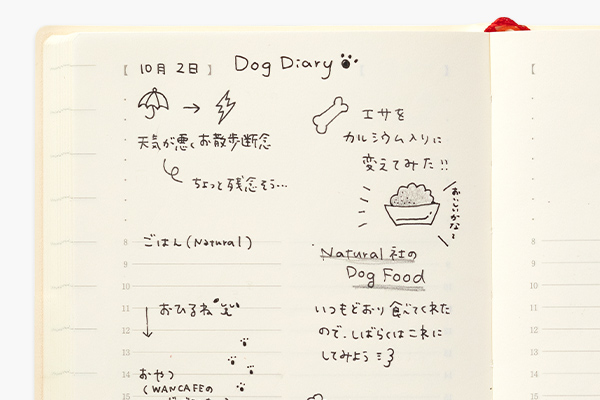 【 10月 2日 】 Dog Diary
天気が悪く お散歩断念
ちょっと残念そう…
エサを
カルシウム入りに
変えてみた!!
おいしいかな〜
8 ごはん(Natural)
9
10
Natural 社の
Dog Food
11 おひるね
いつもどおり 食べてくれた
12
ので、しばらくはこれに
13
してみよう
14 おやつ
(WANCAFEの
【
8
9
10
11
12
13
14